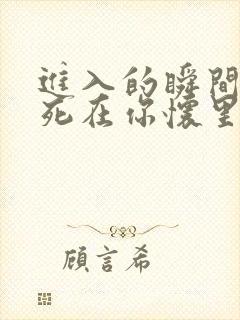 進入的瞬間
死在你懷里
顧言希